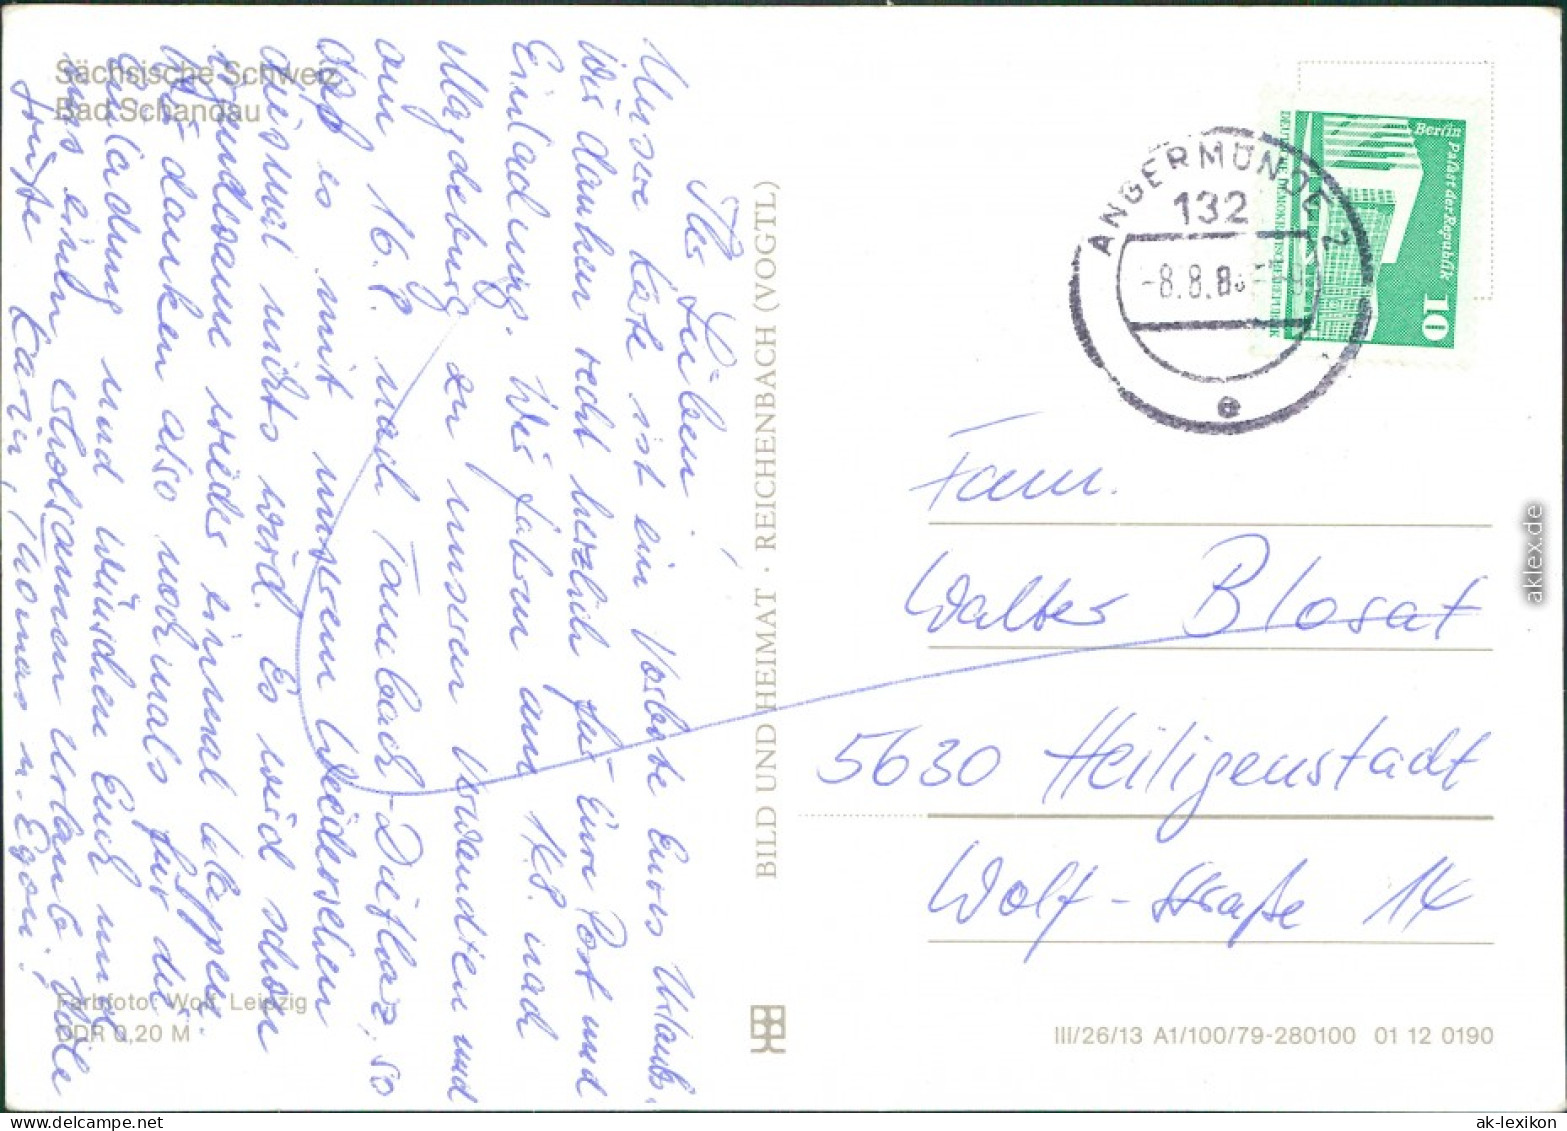 Sächsische Schweiz
Bad Schandau
Ihr Lieben!
Unsere Karte ist ein Vorbote Eures Urlaubs.
Wir danken recht herzlich für Eure Post und
Einladung. Wir fahren am 14.8. nach
Magdeburg zu unseren Verwandten und
am 16.8. nach Tambach-Dietharz, so
daß es mit unserem Wiedersehen
diesmal nichts wird. Es wird schon
irgendwann wieder einmal klappen.
Wir danken also nochmals für die
Einladung und wünschen Euch und
uns einen erholsamen Urlaub. Viele
Karin, Thomas u. Egon!
Farbfoto: Wolf, Leipzig
DDR 0,20 M
BILD UND HEIMAT · REICHENBACH (VOGTL)
ANGERMÜNDE 2
132
-8.8.8
e
Berlin Palast der Republik
10
Fam.
Walter Blosat
5630 Heiligenstadt
Wolf-Straße 14
III/26/13 A1/100/79-280100 01 12 0190
aklex.de
ak-lexikon